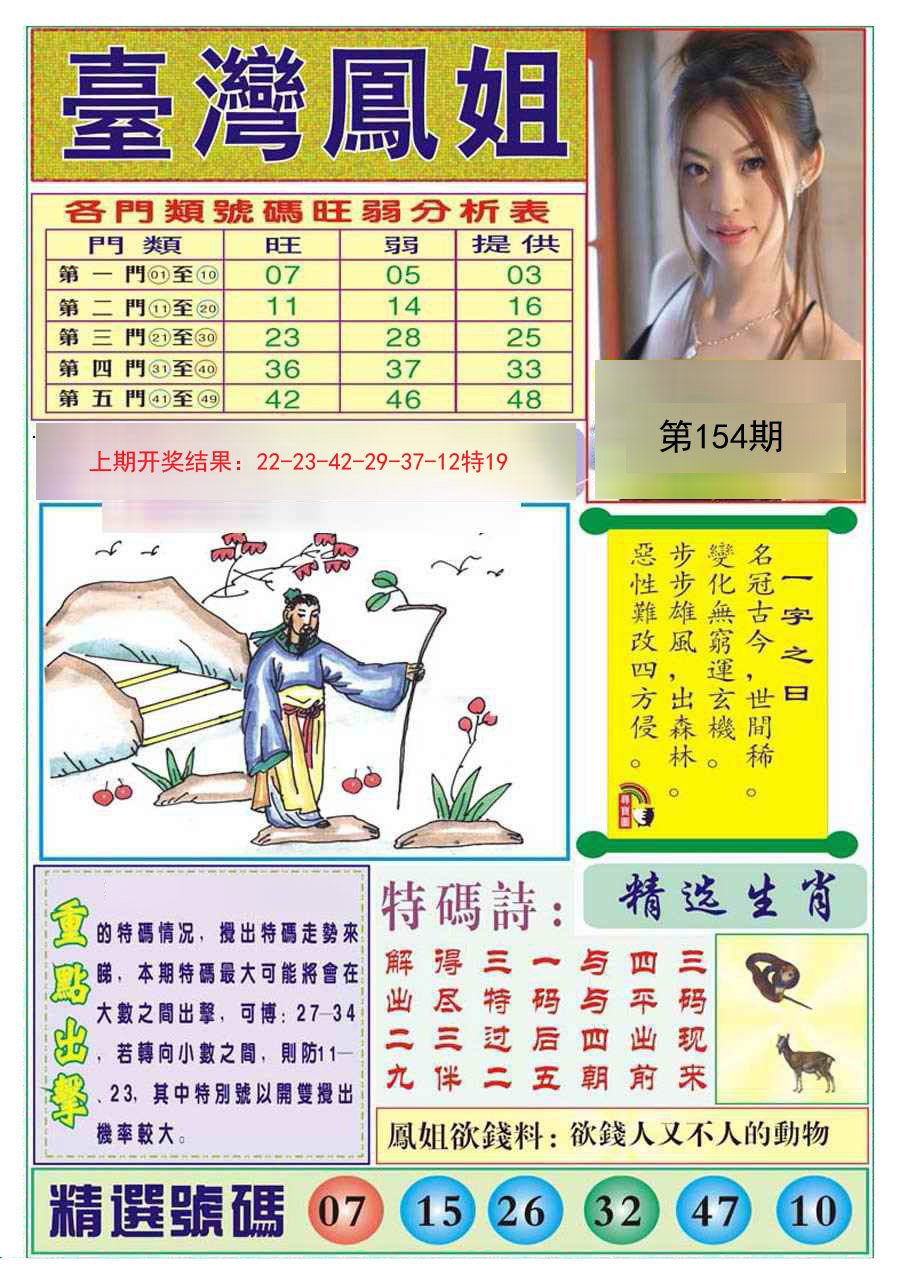 臺灣鳳姐
各門類號碼旺弱分析表
門類 旺 弱 提供
第一門01至10 07 05 03
第二門11至20 11 14 16
第三門21至30 23 28 25
第四門31至40 36 37 33
第五門41至49 42 46 48
第154期
上期开奖结果：22-23-42-29-37-12特19
一字之曰
名冠古今，世間稀。
變化無窮運玄機。
步步雄風，出森林。
惡性難改四方侵。
尋寶圖
重點出擊
的特碼情况，攪出特碼走勢來
睇，本期特碼最大可能將會在
大數之間出擊，可博：27—34
，若轉向小數之間，則防11—
、23，其中特別號以開雙攪出
機率較大。
特碼詩：
解得三一与四三
出尽特码与平码
二三过后四出现
九伴二五朝前来
精选生肖
鳳姐欲錢料：欲錢人又不人的動物
精選號碼 07 15 26 32 47 10